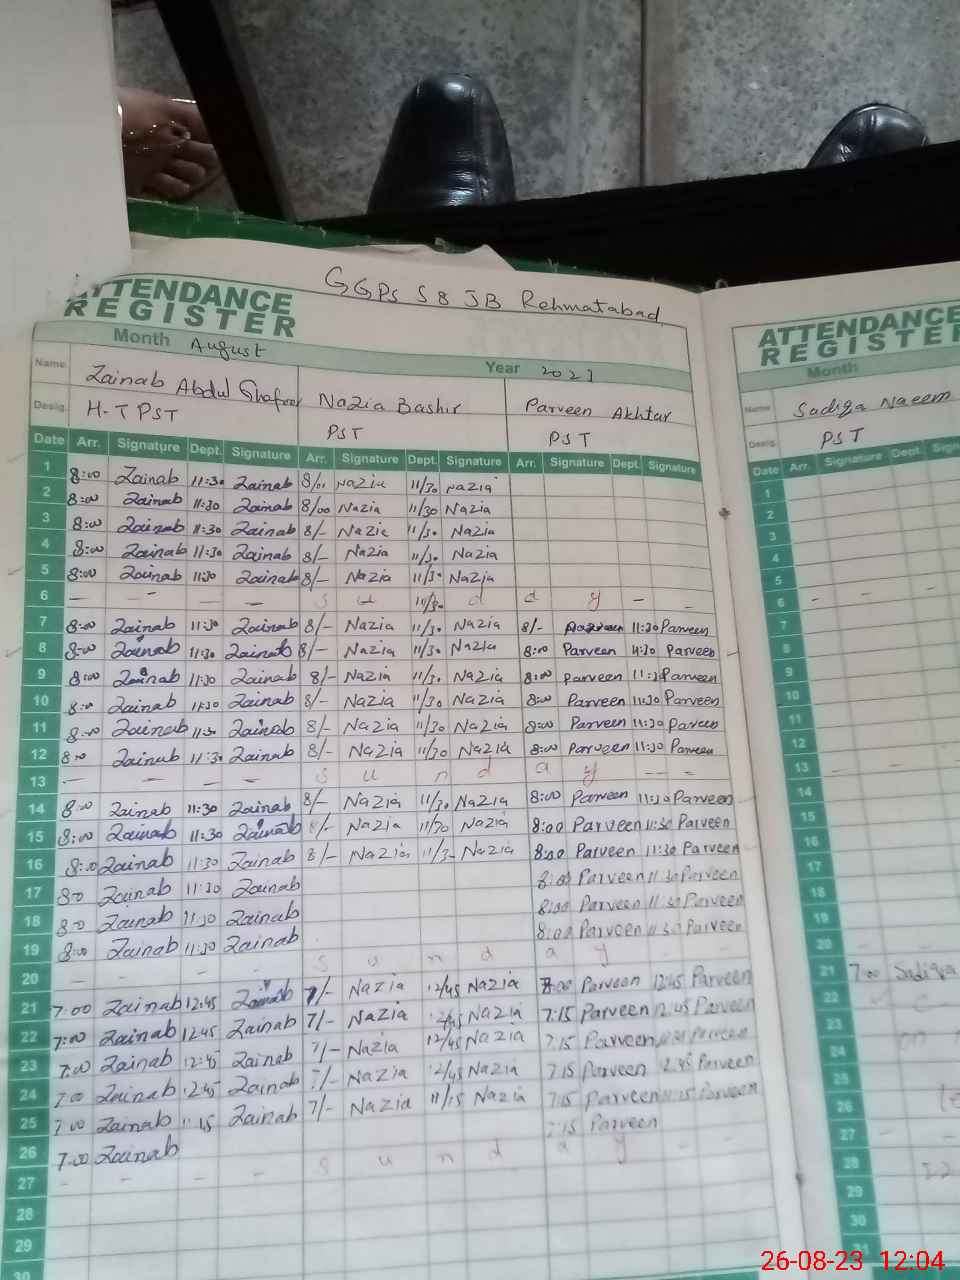 GGPS 58 JB Rehmatabad
ATTENDANCE
REGISTER
Month August
Year 2023
Name Zainab Abdul Ghafoor Nazia Bashir Parveen Akhtar
Desig. H-T PST PST PST
Date Arr. Signature Dept. Signature Arr. Signature Dept. Signature Arr. Signature Dept. Signature
1 8:00 Zainab 11:30 Zainab 8/00 Nazia 11/30 Nazia
2 8:00 Zainab 11:30 Zainab 8/00 Nazia 11/30 Nazia
3 8:00 Zainab 11:30 Zainab 8/- Nazia 11/30 Nazia
4 8:00 Zainab 11:30 Zainab 8/- Nazia 11/30 Nazia
5 8:00 Zainab 11:30 Zainab 8/- Nazia 11/30 Nazia
6 - - - - S u 11/30 d a y - -
7 8:00 Zainab 11:30 Zainab 8/- Nazia 11/30 Nazia 8/- Parveen 11:30 Parveen
8 8:00 Zainab 11:30 Zainab 8/- Nazia 11/30 Nazia 8:00 Parveen 11:30 Parveen
9 8:00 Zainab 11:30 Zainab 8/- Nazia 11/30 Nazia 8:00 Parveen 11:30 Parveen
10 8:00 Zainab 11:30 Zainab 8/- Nazia 11/30 Nazia 8:00 Parveen 11:30 Parveen
11 8:00 Zainab 11:30 Zainab 8/- Nazia 11/30 Nazia 8:00 Parveen 11:30 Parveen
12 8:00 Zainab 11:30 Zainab 8/- Nazia 11/30 Nazia 8:00 Parveen 11:30 Parveen
13 - - - - S u n d a y - - -
14 8:00 Zainab 11:30 Zainab 8/- Nazia 11/30 Nazia 8:00 Parveen 11:30 Parveen
15 8:00 Zainab 11:30 Zainab 8/- Nazia 11/30 Nazia 8:00 Parveen 11:30 Parveen
16 8:00 Zainab 11:30 Zainab 8/- Nazia 11/30 Nazia 8:00 Parveen 11:30 Parveen
17 8:00 Zainab 11:30 Zainab 8:00 Parveen 11:30 Parveen
18 8:00 Zainab 11:30 Zainab 8:00 Parveen 11:30 Parveen
19 8:00 Zainab 11:30 Zainab 8:00 Parveen 11:30 Parveen
20 - - - - S u n d a y - -
21 7:00 Zainab 12:45 Zainab 7/- Nazia 12/45 Nazia 8:00 Parveen 12:45 Parveen
22 7:00 Zainab 12:45 Zainab 7/- Nazia 12/45 Nazia 7:15 Parveen 12:45 Parveen
23 7:00 Zainab 12:45 Zainab 7/- Nazia 12/45 Nazia 7:15 Parveen Parveen
24 7:00 Zainab 12:45 Zainab 7/- Nazia 12/45 Nazia 7:15 Parveen 12:45 Parveen
25 7:00 Zainab 11:15 Zainab 7/- Nazia 11/15 Nazia 7:15 Parveen 11:15 Parveen
26 7:00 Zainab 7:15 Parveen
27 - - - - S u n d a y - -
28
29
30
ATTENDANCE
REGISTER
Month
Name Sadiqa Naeem
Desig. PST
Date Arr. Signature Dept. Signature
1
2
3
4
5
6
7
8
9
10
11
12
13
14
15
16
17
18
19
20
21 7:00 Sadiqa
22
23
24
25
26
27
28
29
30
31
26-08-23 12:04